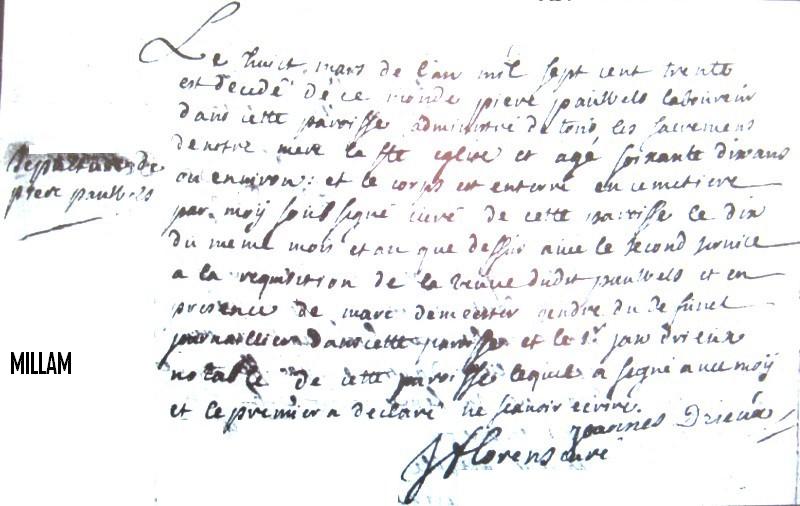 Le huict mars de l'an mil sept cent trente
est decedé de ce monde piere pauwels laboureur
dans cette paroisse administré de tous les sacremens
de notre mere la ste eglise et agé soixante dix ans
ou environ: et le corps est enterré en cemetiere
par moÿ soubsigné curé de cette paroisse le dix
du meme mois et an que dessus avec le second service
a la requisition de la veuve dudit pauwels et en
presence de marc demeester gendre du defunct
journaillier dans cette paroisse et le sr. jan drieux
notable de cette paroisse lequel a segné avec moÿ
et le premier a declaré ne scavoir ecrire.
Joannes Drieux
J florens curé
sepulture de
piere pauwels
MILLAM